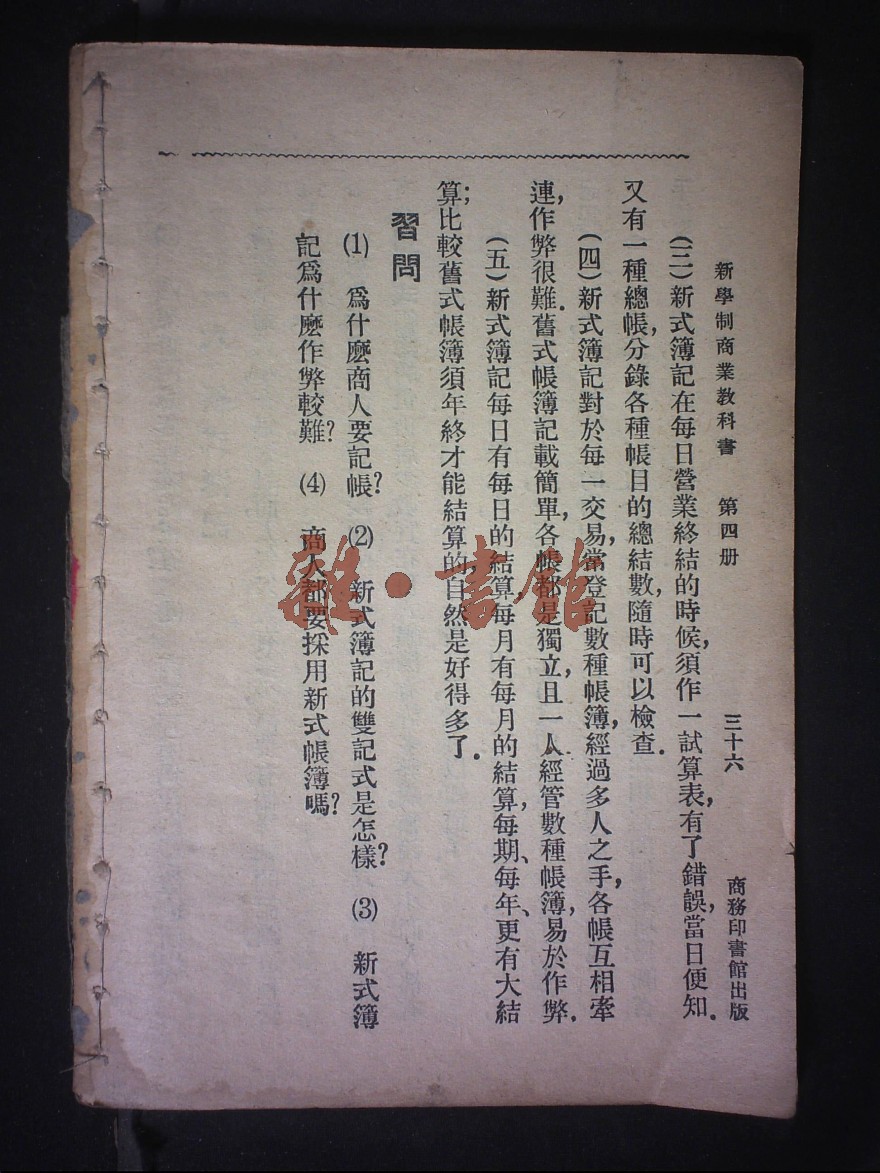 新學制商業教科書　第四册　三十六　商務印書館出版
(三)新式簿記在每日營業終結的時候,須作一試算表,有了錯誤,當日便知.
又有一種總帳,分錄各種帳目的總結數,隨時可以檢查.
(四)新式簿記對於每一交易,當登記數種帳簿,經過多人之手,各帳互相牽
連,作弊很難.舊式帳簿記載簡單,各帳都是獨立,且一人經管數種帳簿,易於作弊.
(五)新式簿記每日有每日的結算,每月有每月的結算,每期、每年、更有大結
算;比較舊式帳簿須年終才能結算的,自然是好得多了.
習問
(1)　爲什麼商人要記帳?　(2)　新式簿記的雙記式是怎樣?　(3)　新式簿
記爲什麼作弊較難?　(4)　商人都要採用新式帳簿嗎?
雜·書館